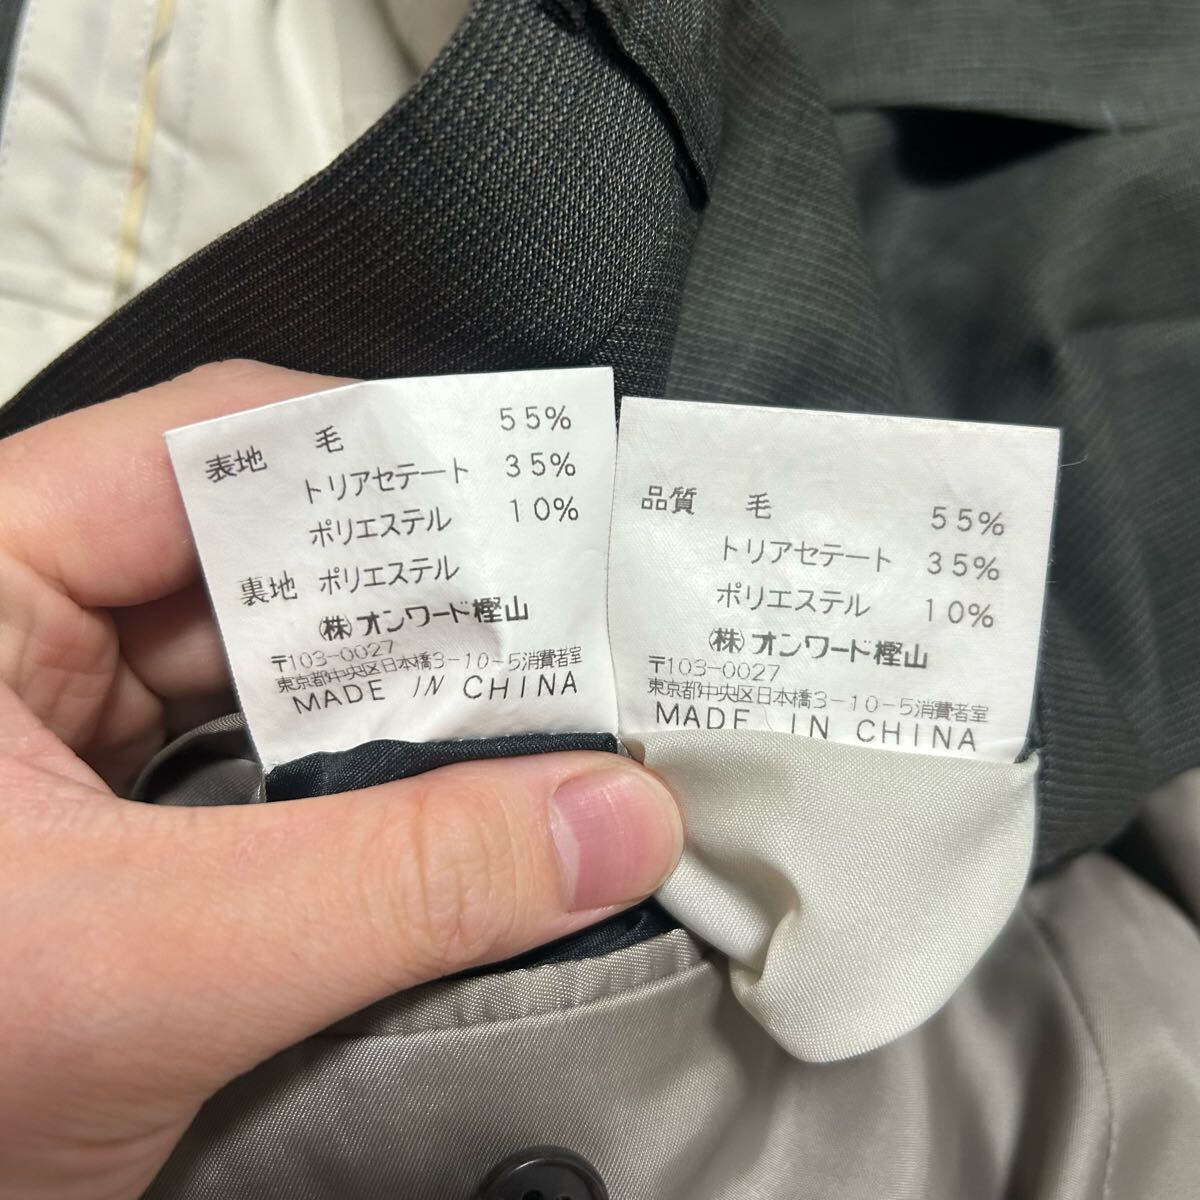 表地 毛 55%
トリアセテート 35%
ポリエステル 10%
裏地 ポリエステル
(株)オンワード樫山
〒103-0027
東京都中央区日本橋3-10-5消費者室
MADE IN CHINA
品質 毛 55%
トリアセテート 35%
ポリエステル 10%
(株)オンワード樫山
〒103-0027
東京都中央区日本橋3-10-5消費者室
MADE IN CHINA